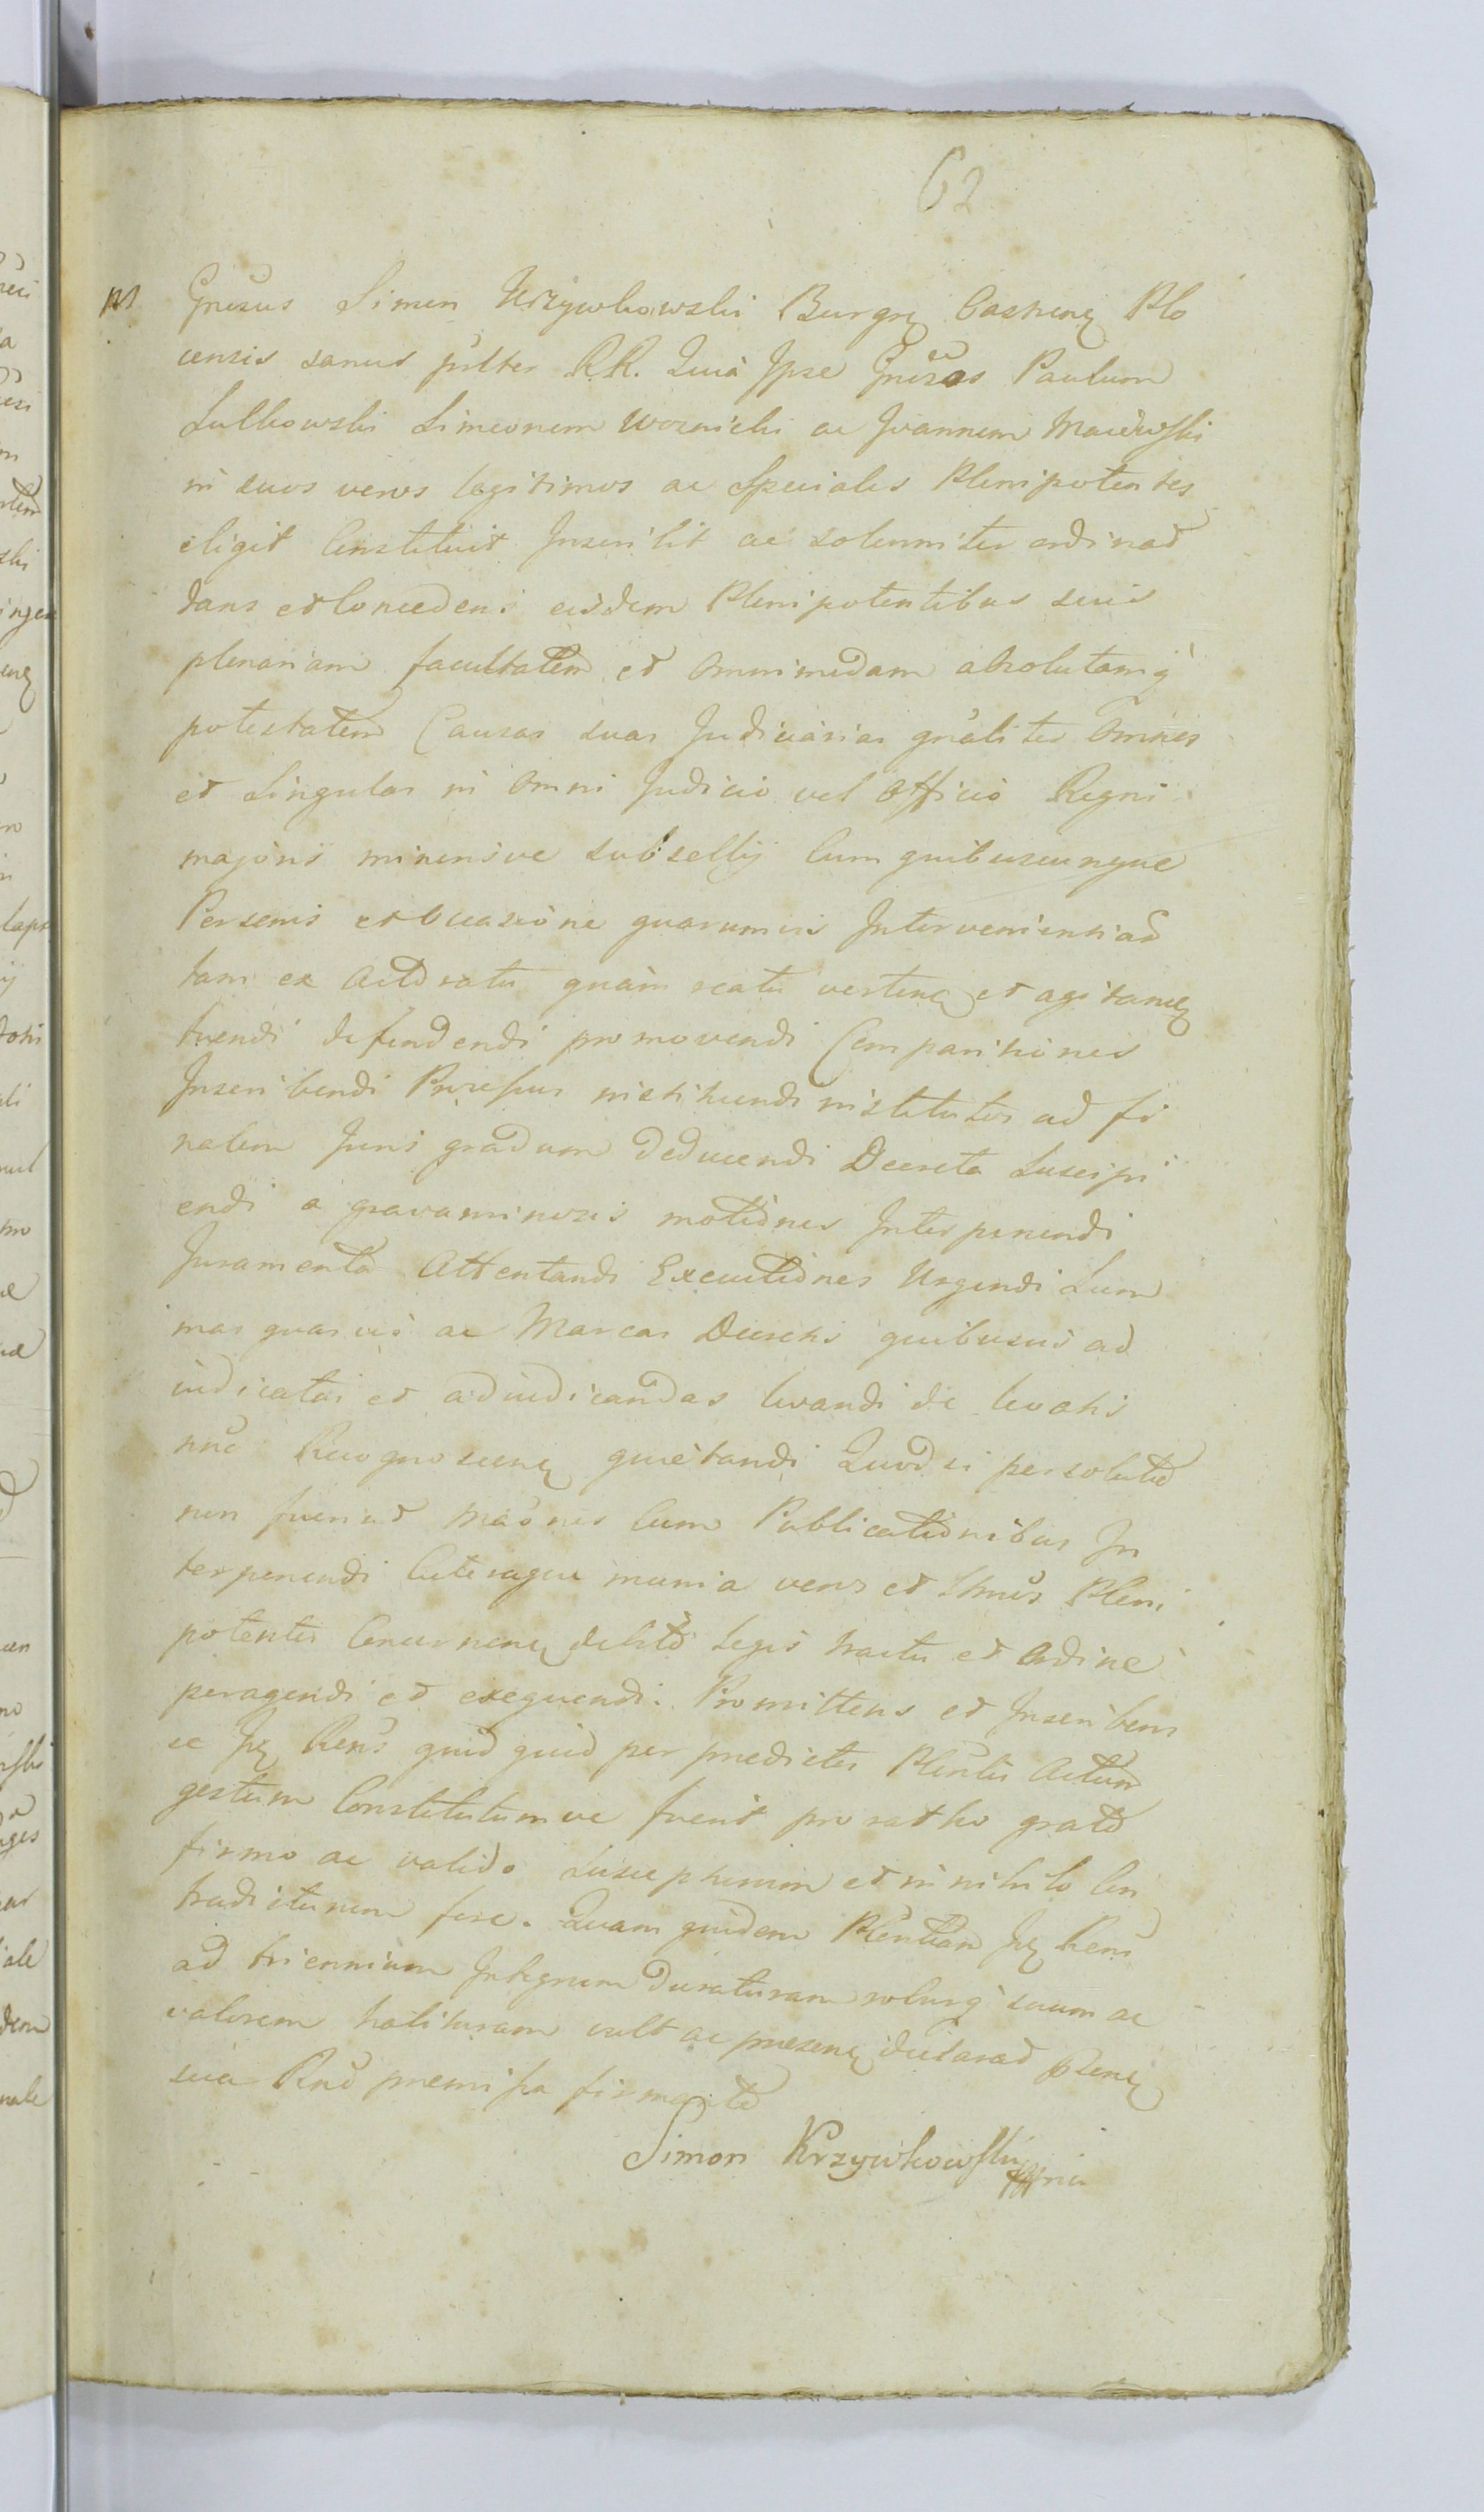 62
Gnrsus Simon Krzywkowski Burgr Castren Plo
censis sanus pnlter RR. Quia Ipse Gnrsos Paulum
Sulkowski Simeonem Woznicki ac Joannem Maiewski
in suos veros legitimos ac Speciales Plenipotentes
eligit Constituit Inscribit ac solenniter ordinat
dans et Concedens eisdem Plenipotentibus suis
plenariam facultatem et omnimodam absolutamq
potestatem Causas suas Judiciarias gnaliter omnes
et Singulas in omni Judicio vel Officio Regni
majoris minorisve subsellij Cum quibuscunque
Personis et occasione quarumvis Intervenientiad
tam ex Actoratu quàm reatu verten et agitan
tuendi defendendi promovendi Comparitiones
Inscribendi Processus instituendi institutos ad fi
nalem Juris gradum deducendi Decreta Suscipi
endi a gravaminosis motiones Interponendi
Juramenta Attentandi Executiones Urgendi Sum
mas quasvis ac Marcas Decretis quibusvis ad
iudicatas et adiudicandas levandi de levatis
nne Recognoscen quietandi Quod si persolute
non fuerint maones Cum Publicationibus In
terponendi Caeteraque munia veros et ltmos Pleni
potentes Concernen debito Legis tractu et Ordine
peragendi et exequendi. Promittens et Inscribens
se Ip Rens quid quid per predictos Plentes Actum
gestum Constitutumve fuerit pro ratho grato
firmo ac valido suscepturum et in nihilo Con
tradicturum fore. Quam quidem Plentiam Ip Rens
ad triennium Integrum duraturam roburq suum ac
valorem habituram vult ac presen declarat
sua Rne premissa firmante
Simon Krzywkowski mp